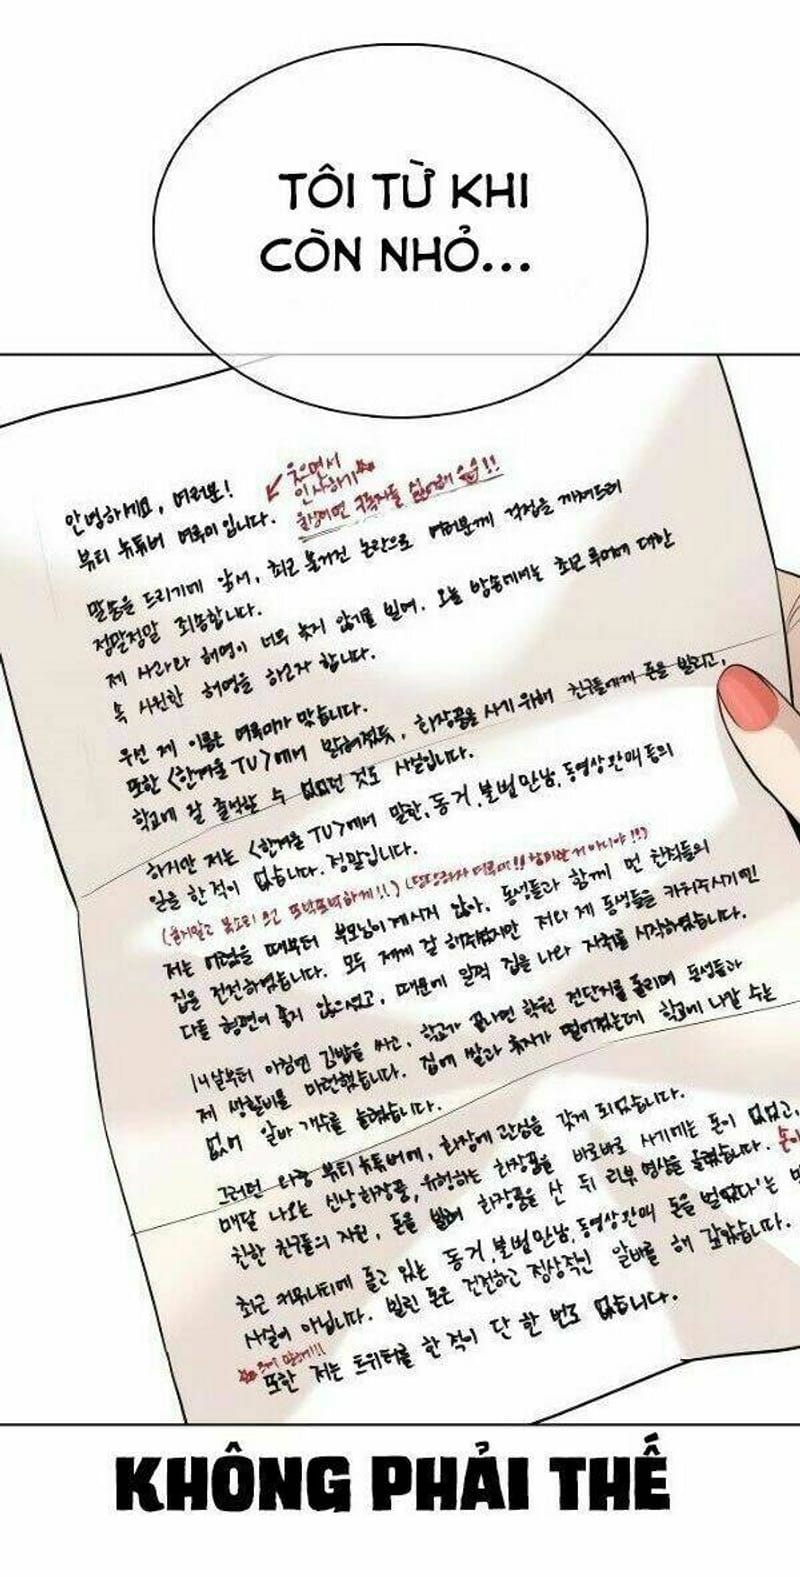 TÔI TỪ KHI
CÒN NHỎ...
안녕하세요, 여러분!
웃으면서
인사하기
뷰티 뉴튜버 여묵미입니다.
말씀을 드리기에 앞서, 최근 불거진 논란으로 여러분께 걱정을 끼쳐드려
정말정말 죄송합니다.
제 사과와 해명이 너무 늦지 않기를 빌며. 오늘 방송에서는 초모 루머에 대한
속 시원한 해명을 하고자 합니다.
우선 제 이름은 여묵미가 맞습니다.
또한 <한겨울 TV>에서 밝혀졌듯, 화장품을 사기 위해 친구들에게 돈을 빌리고,
학교에 잘 출석할 수 없었던 것도 사실입니다.
하지만 저는 <한겨울 TV>에서 말한, 동거, 불법만남, 동영상판매 등의
일을 한 적이 없습니다. 정말입니다.
저는 어렸을 때부터 부모님이 계시지 않아. 동생들과 함께 먼 친척들의
집을 전전하였습니다. 모두 제게 잘 해주셨지만 저와 제 동생들을 키워주시기엔
다들 형편이 좋지 않으셨고, 때문에 일찍 집을 나와 자취를 시작하였습니다.
14살부터 아침엔 김밥을 싸고, 학교가 끝나면 학원 전단지를 돌리며 동생들과
제 생활비를 마련했습니다. 집에 쌀과 휴지가 떨어졌는데 학교에 나갈 수는
없어 알바 개수를 늘렸습니다.
그러던 와중 뷰티 뉴튜버에, 화장에 관심을 갖게 되었습니다.
매달 나오는 신상 화장품, 유행하는 화장품을 바로바로 사기에는 돈이 없었고,
친한 친구들의 지원, 돈을 빌려 화장품을 산 뒤 리뷰 영상을 올렸습니다.
최근 커뮤니티에 돌고 있는 동거, 불법만남, 동영상판매 돈을 벌었다'는
사실이 아닙니다. 빌린 돈은 건전하고 정상적인 알바를 해 갚았습니다.
또한 저는 트위터를 한 적이 단 한 번도 없습니다.
KHÔNG PHẢI THẾ